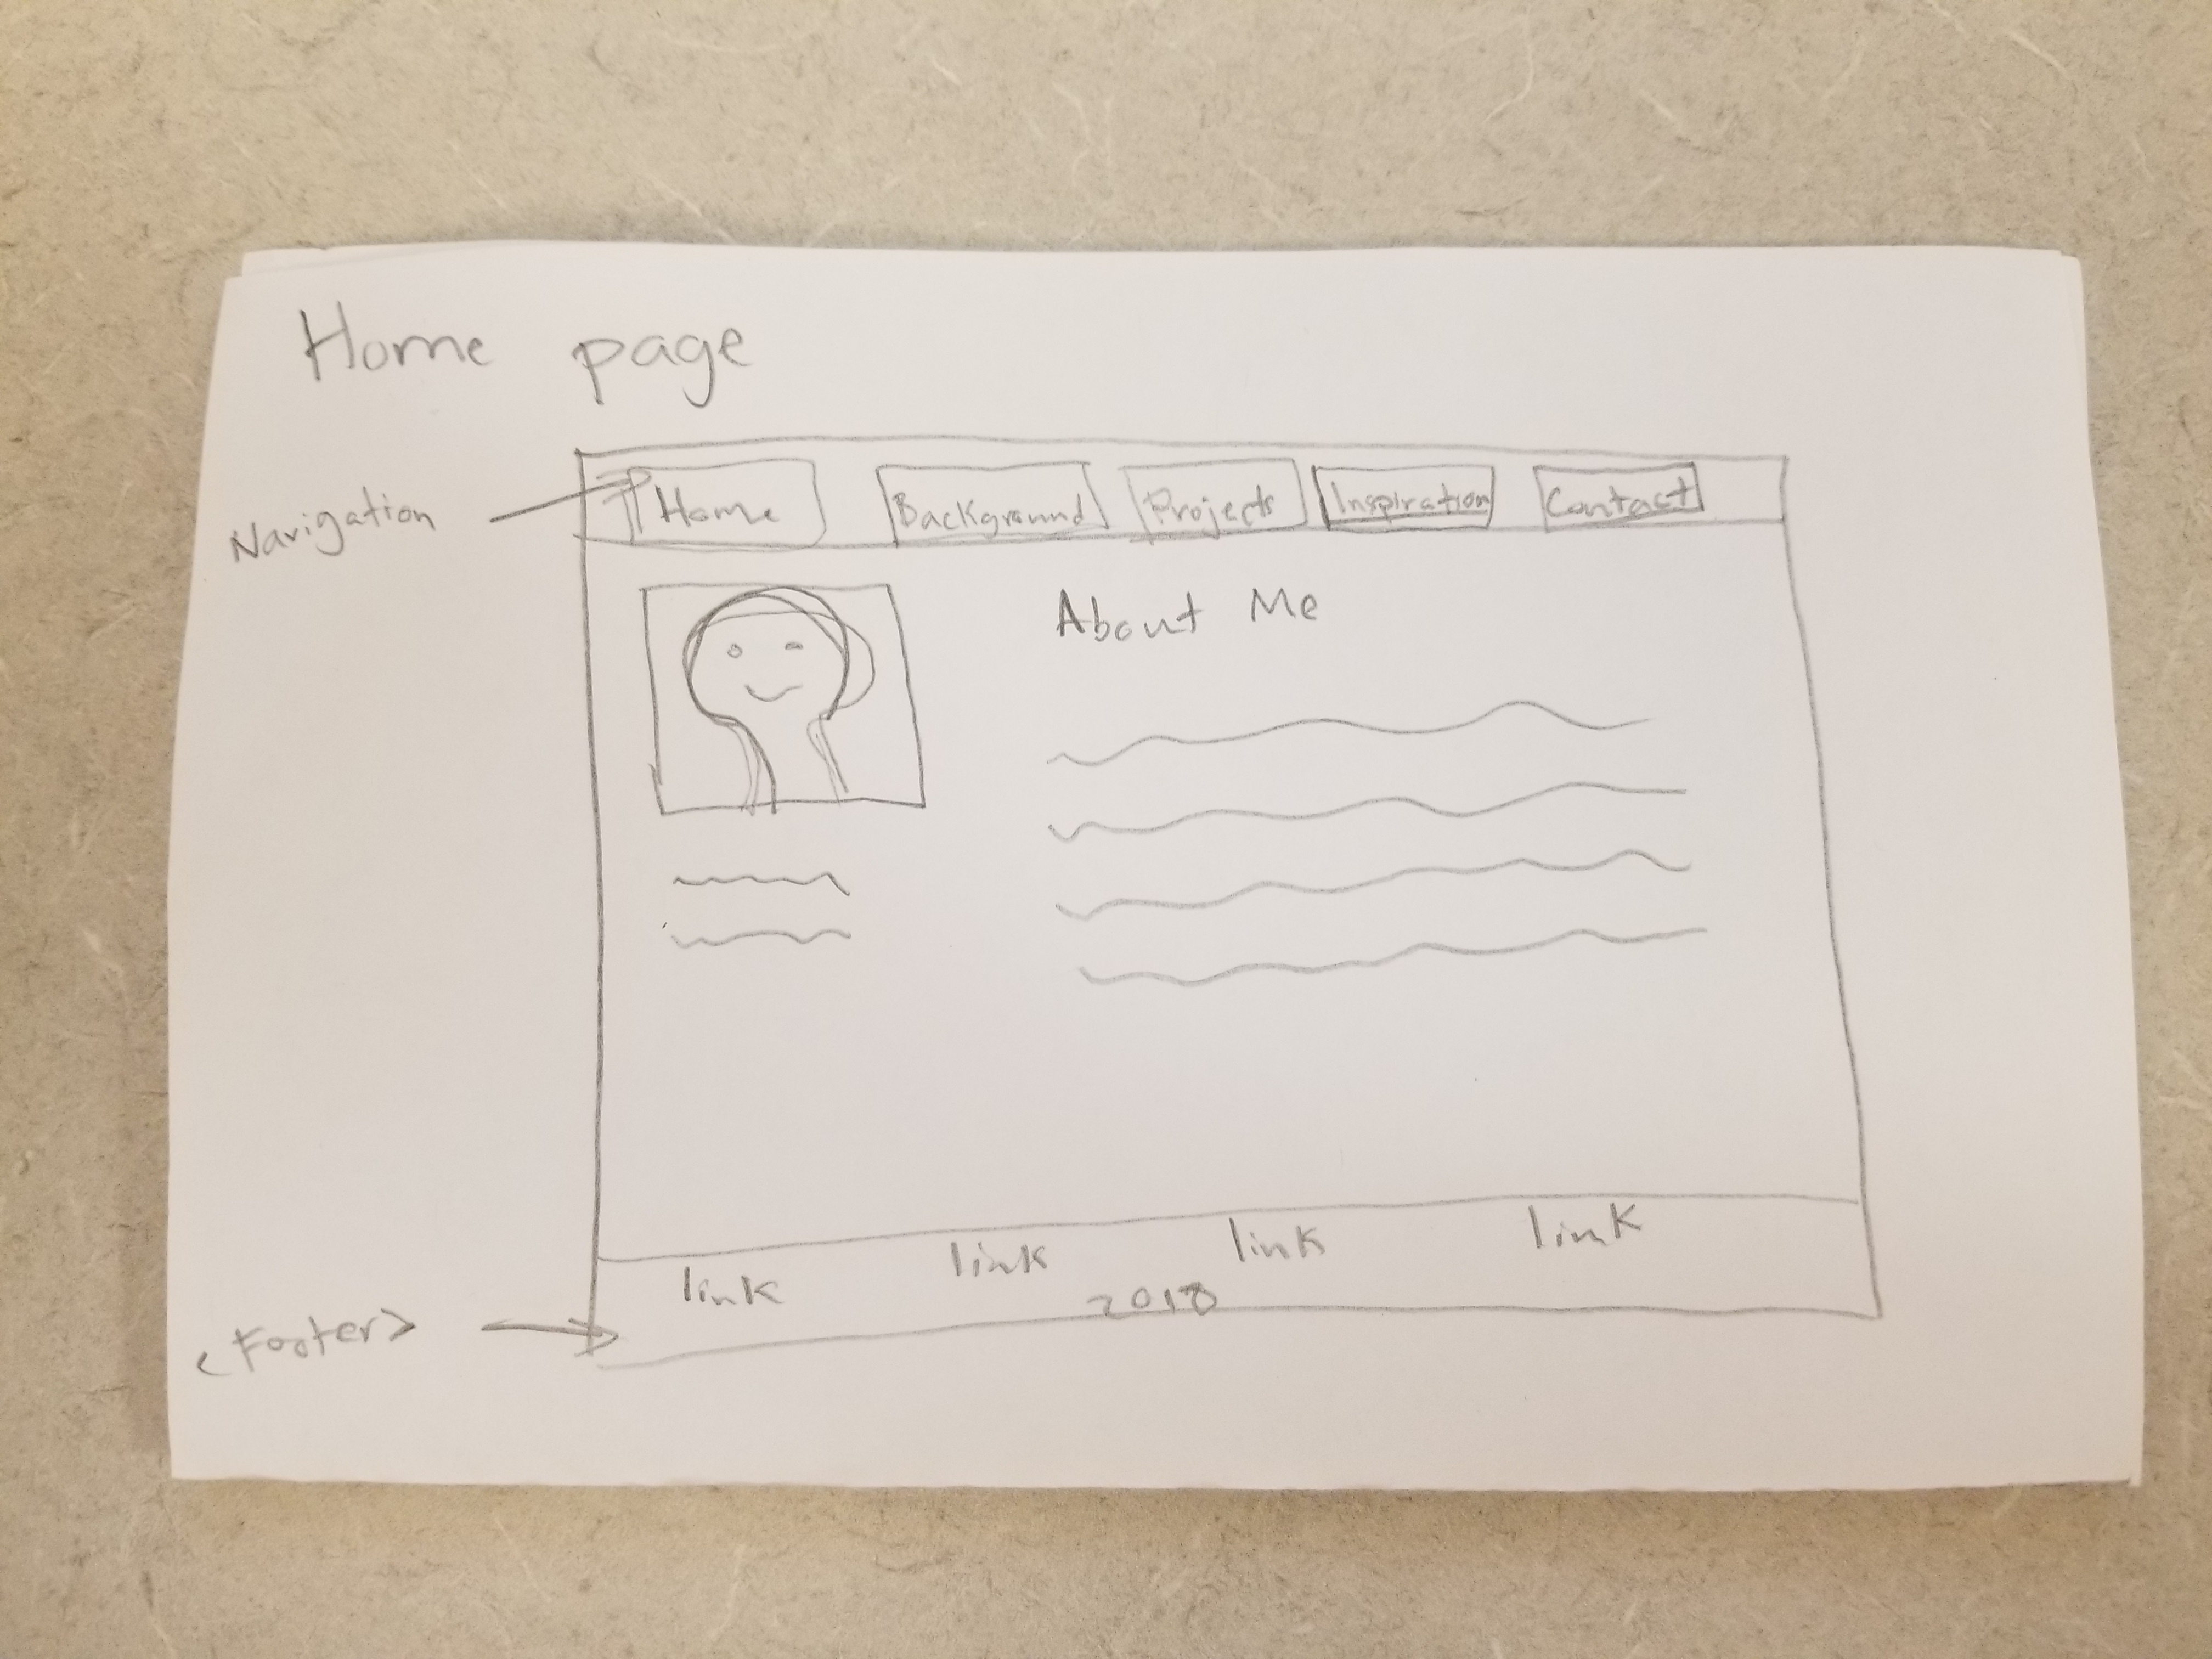 Home page
Navigation
Home Background Projects Inspiration Contact
About Me
<Footer>
link link link link
2018